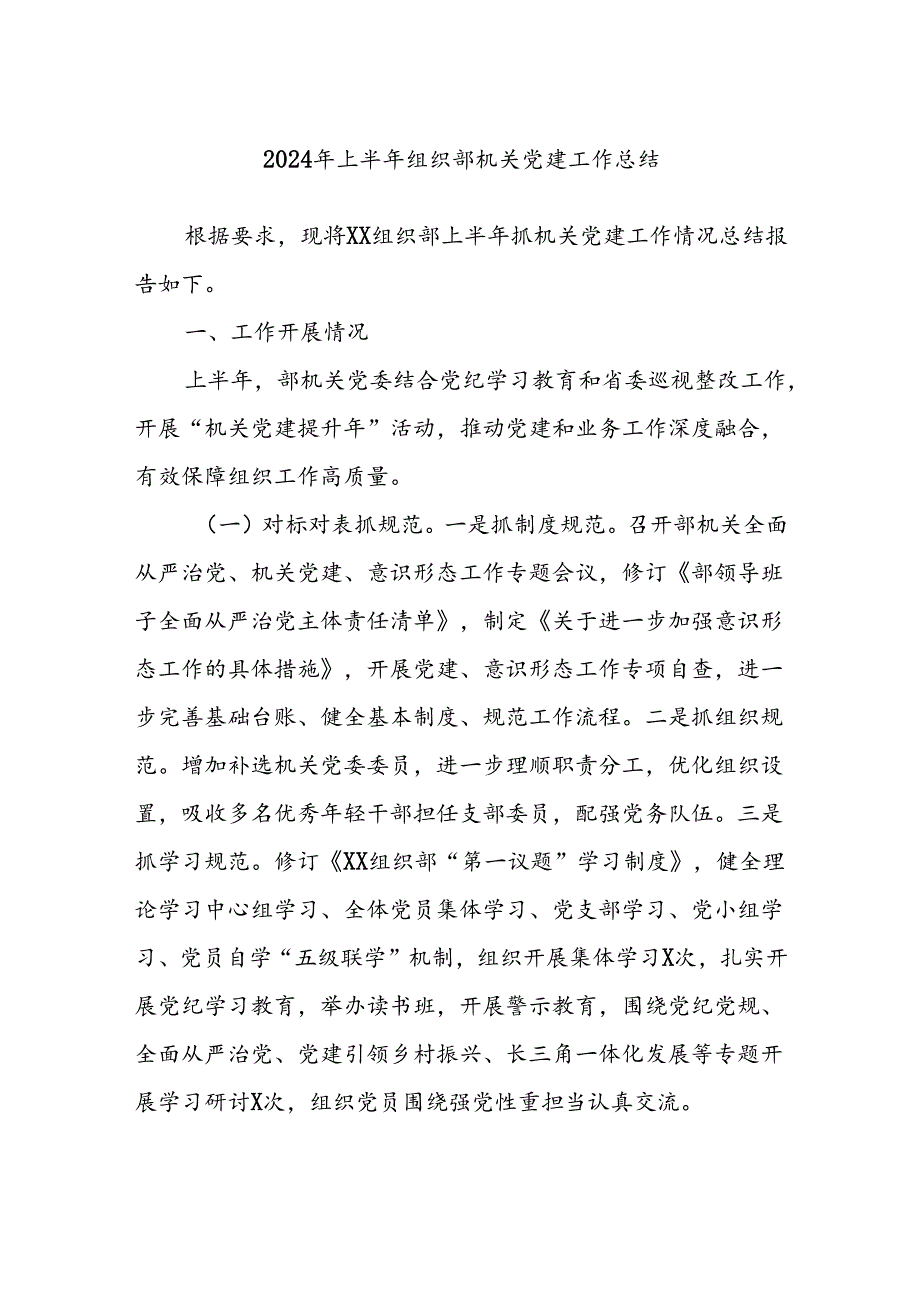 2024年上半年组织部机关党建工作总结
根据要求，现将XX组织部上半年抓机关党建工作情况总结报
告如下。
一、工作开展情况
上半年，部机关党委结合党纪学习教育和省委巡视整改工作，
开展“机关党建提升年”活动，推动党建和业务工作深度融合，
有效保障组织工作高质量。
（一）对标对表抓规范。一是抓制度规范。召开部机关全面
从严治党、机关党建、意识形态工作专题会议，修订《部领导班
子全面从严治党主体责任清单》，制定《关于进一步加强意识形
态工作的具体措施》，开展党建、意识形态工作专项自查，进一
步完善基础台账、健全基本制度、规范工作流程。二是抓组织规
范。增加补选机关党委委员，进一步理顺职责分工，优化组织设
置，吸收多名优秀年轻干部担任支部委员，配强党务队伍。三是
抓学习规范。修订《XX组织部“第一议题”学习制度》，健全理
论学习中心组学习、全体党员集体学习、党支部学习、党小组学
习、党员自学“五级联学”机制，组织开展集体学习X次，扎实开
展党纪学习教育，举办读书班，开展警示教育，围绕党纪党规、
全面从严治党、党建引领乡村振兴、长三角一体化发展等专题开
展学习研讨X次，组织党员围绕强党性重担当认真交流。